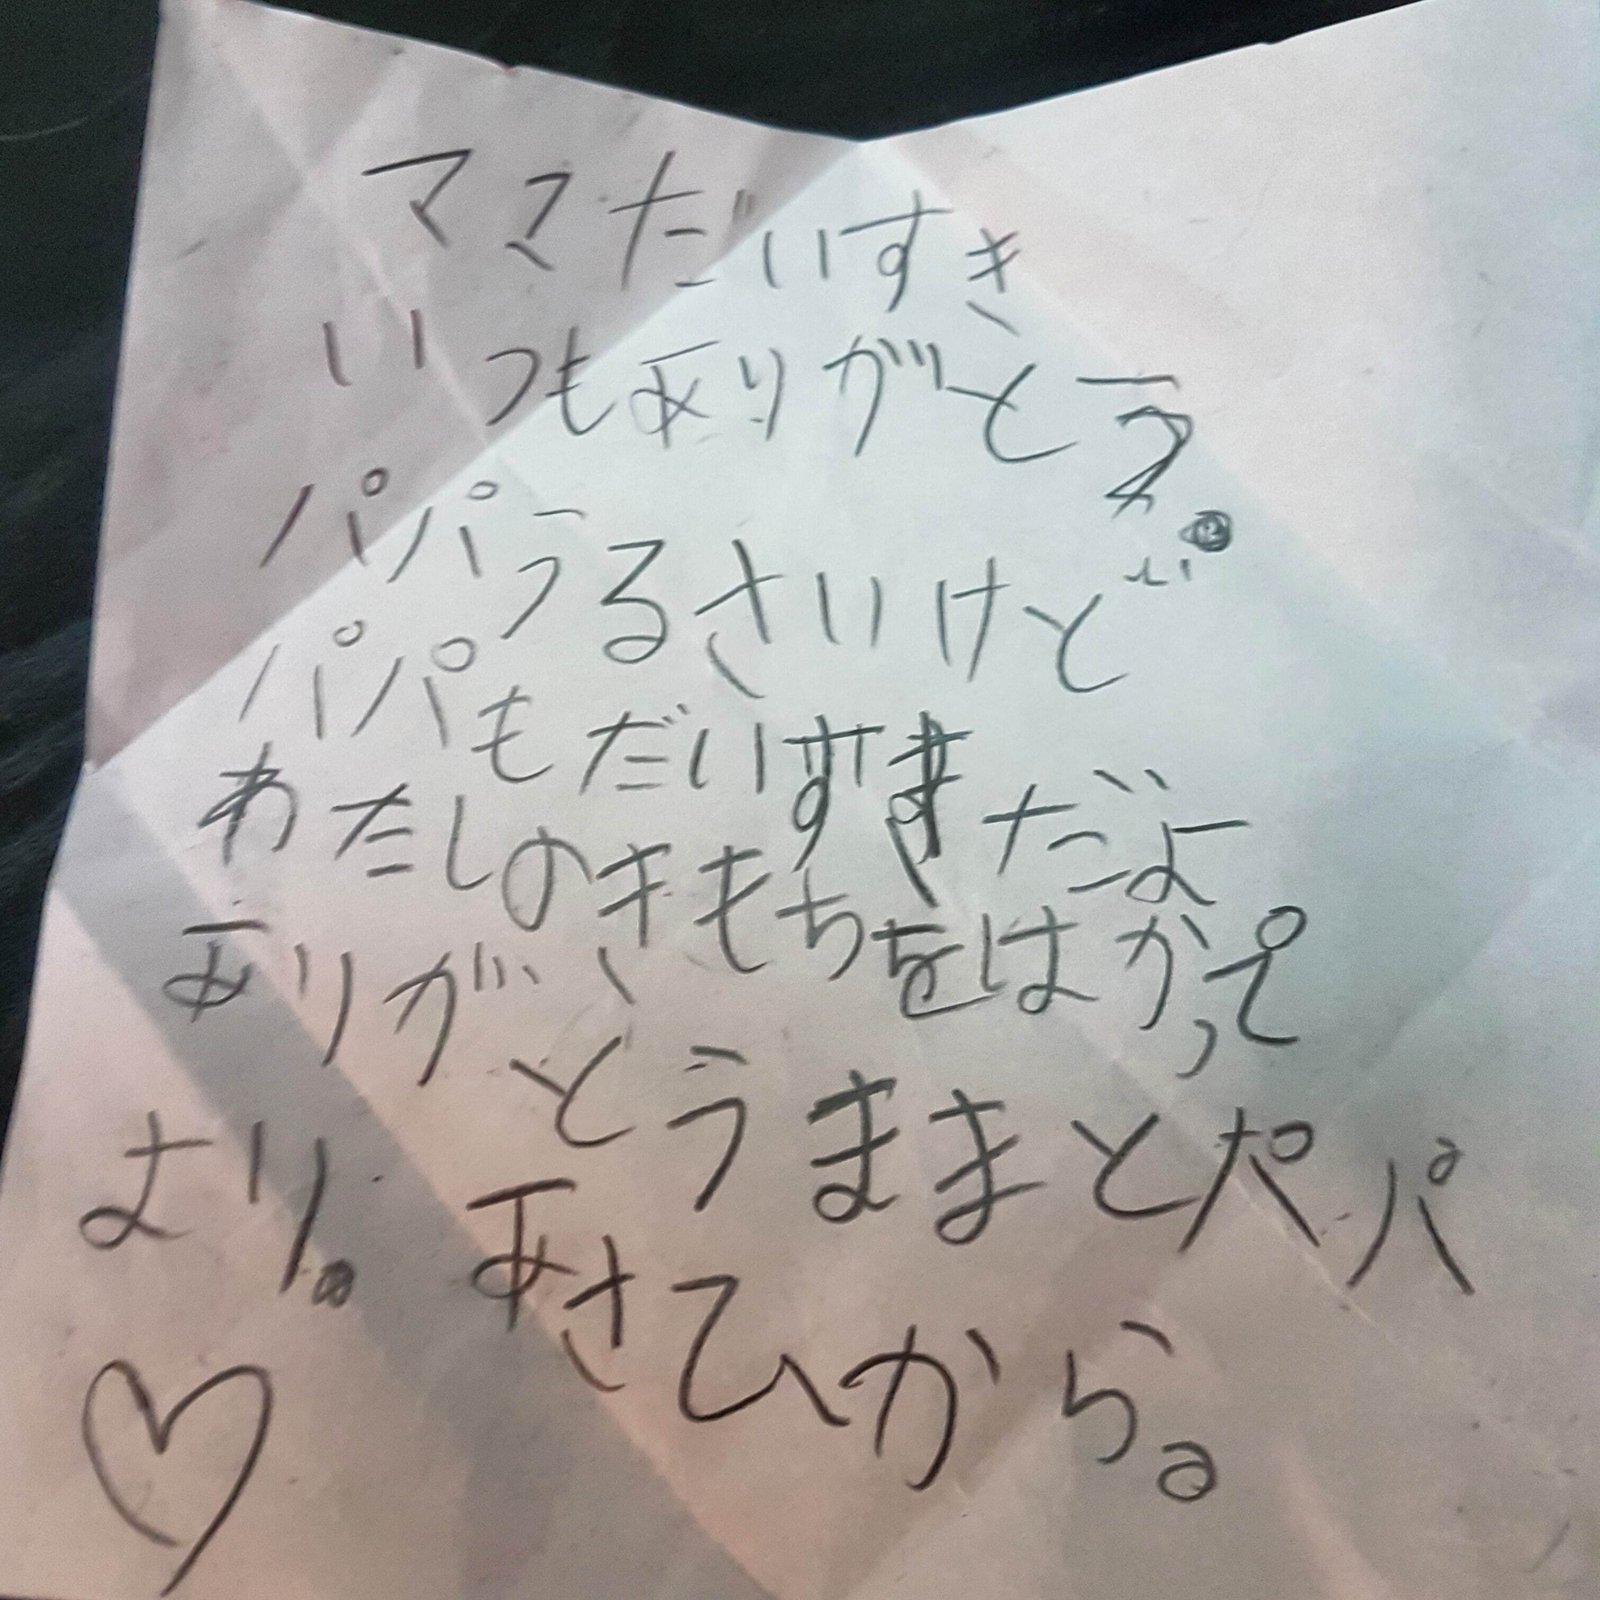 ママだいすき
いつもありがとう。
パパうるさいけど
パパもだいすきだよ
わたしのきもちをはかって
ありがとうままとパパ
より。あさひから。